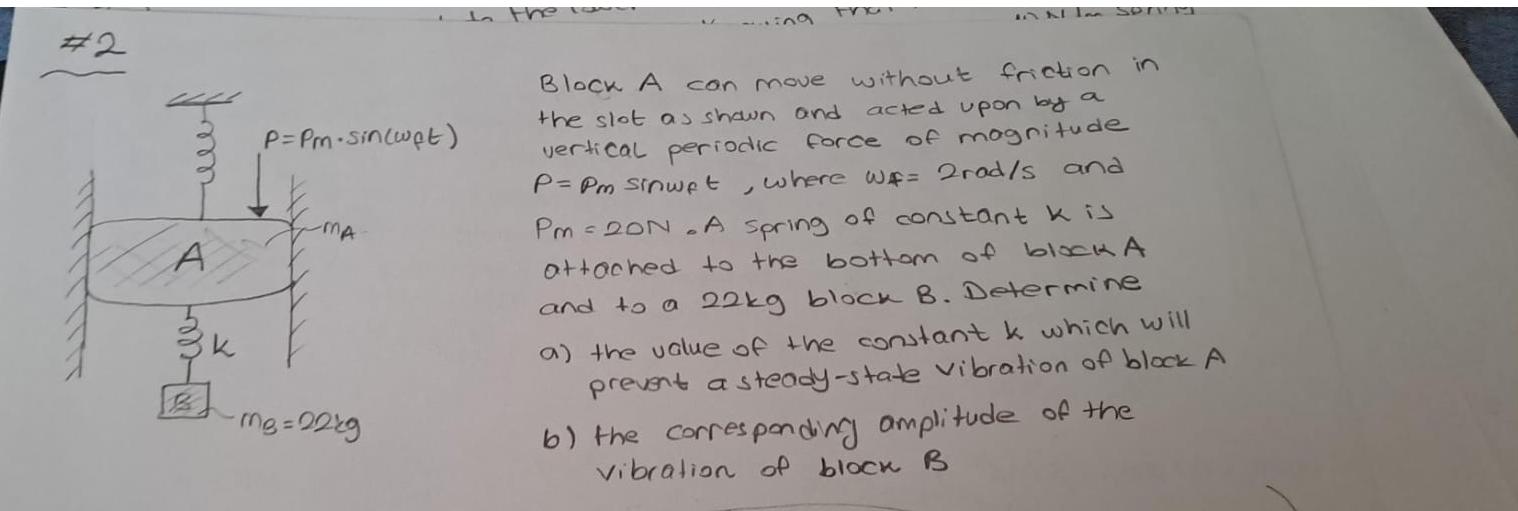 #2
P=Pm·sin(wft)
mA
A
k
B
mB=22kg
Block A can move without friction in
the slot as shown and acted upon by a
vertical periodic force of magnitude
P=Pm sinwft , where wf= 2rad/s and
Pm=20N. A spring of constant k is
attached to the bottom of block A
and to a 22kg block B. Determine
a) the value of the constant k which will
prevent a steady-state vibration of block A
b) the corresponding amplitude of the
vibration of block B